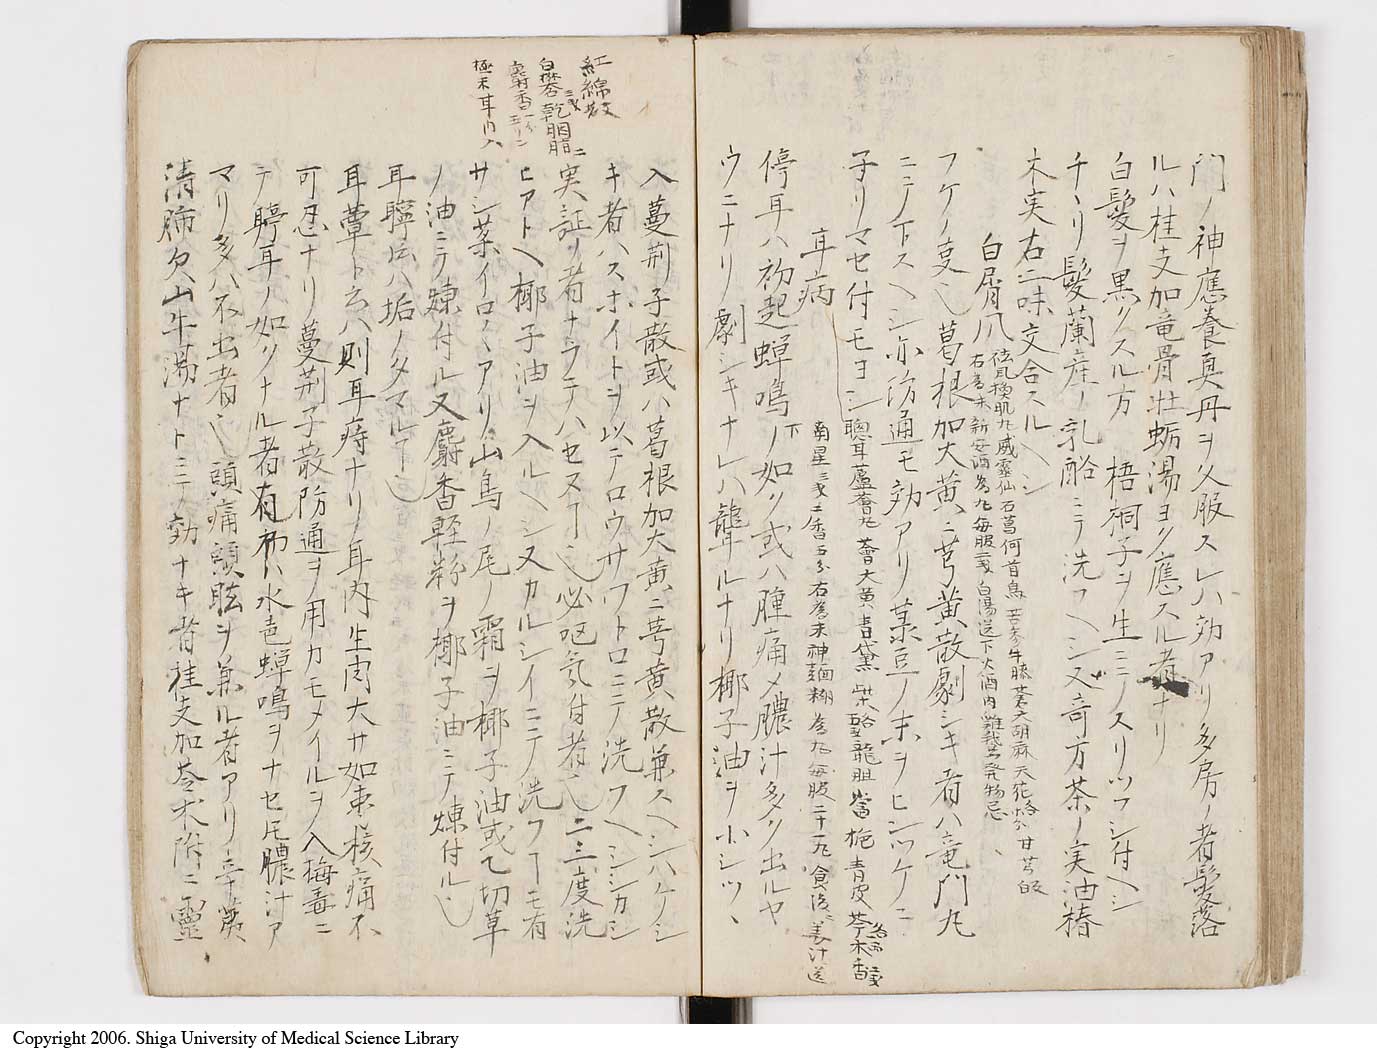 門ノ神應養真丹ヲ久服スレハ効アリ多房ノ者髪落
ルハ桂支加竜骨牡蛎湯ヨク應スル者ナリ
白髪ヲ黒クスル方 梧桐子ヲ生ニテスリツフシ付ヘシ
チヽリ髪蘭産ノ乳酪ニテ洗フヘシ又奇方茶ノ実油椿
木実右二味交合スルヘシ
白屑風
祛風換肌丸威霊仙石菖何首烏苦参牛膝蒼大胡麻天花 甘芎
右為末新安酒為丸毎服二戔白湯送下火酒肉雞鵞発物忌
フケノ㕝也葛根加大黄ニ芎黄散劇シキ者ハ竜門丸
ニテ下スヘシ亦防通モ効アリ菉豆ノ末ヲヒシツケニ
子リマセ付モヨシ
聰耳蘆薈丸 薈大黄青黛 柴 龍胆 當 梔 青皮 芩 木香
南星三戔 香五分右為末神麯糊為丸毎服二十丸食後ニ姜汁送下
耳病
停耳ハ初起蝉鳴ノ如ク或ハ腫痛メ膿汁多ク出ルヤ
ウニナリ劇シキナレハ聾ルナリ椰子油ヲ小シツヽ
紅綿散
白礬 二戔 乾胭脂 二
麝香 一分五リン
極末耳内入
入蔓荊子散或ハ葛根加大黄ニ芎黄散兼スヘシハケシ
キ者ハスホイトヲ以テロウサワトロニテ洗フヘシシカシ
実証ノ者ナラテハセヌ也必呕気付者也二三度洗
ヒアトヘ椰子油ヲ入ルヘシ又カルシイニテ洗フ一モ有
サシ薬イロヽアリ山鳥ノ尾ノ霜ヲ椰子油或乙切草
ノ油ニテ煉付ル又麝香軽粉ヲ椰子油ニテ煉付ル也
耳聹ハ垢ノタマル也
耳蕈ト云ハ則耳痔ナリ耳内生肉大サ如棗核痛不
可忍ナリ蔓荊子散防通ヲ用カモメイルヲ入梅毒ニ
テ聤耳ノ如クナル者有初ハ水色蝉鳴ヲナセ𪜈膿汁ア
マリ多ハ不出者也頭痛頭眩ヲ兼ル者アリ辛荑
清肺欠山牛湯ナトニテ効ナキ者桂支加苓朮附ニ靈